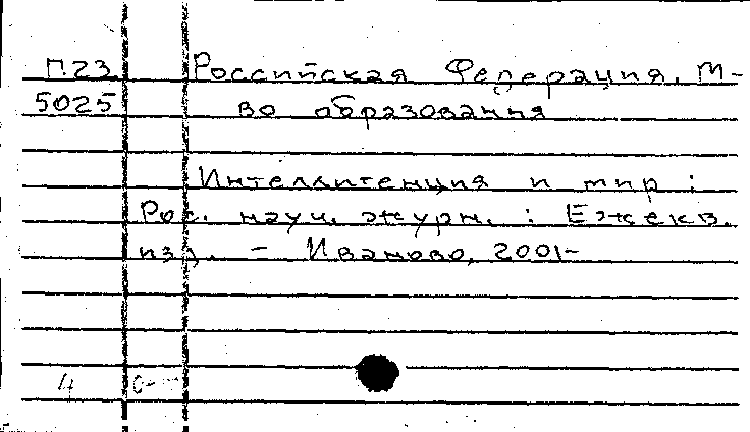 П23 Российская Федерация. М-
5025 во образования
Интеллигенция и мир :
Рос. науч. журн. : Ежекв.
изд. – Иваново, 2001-
4